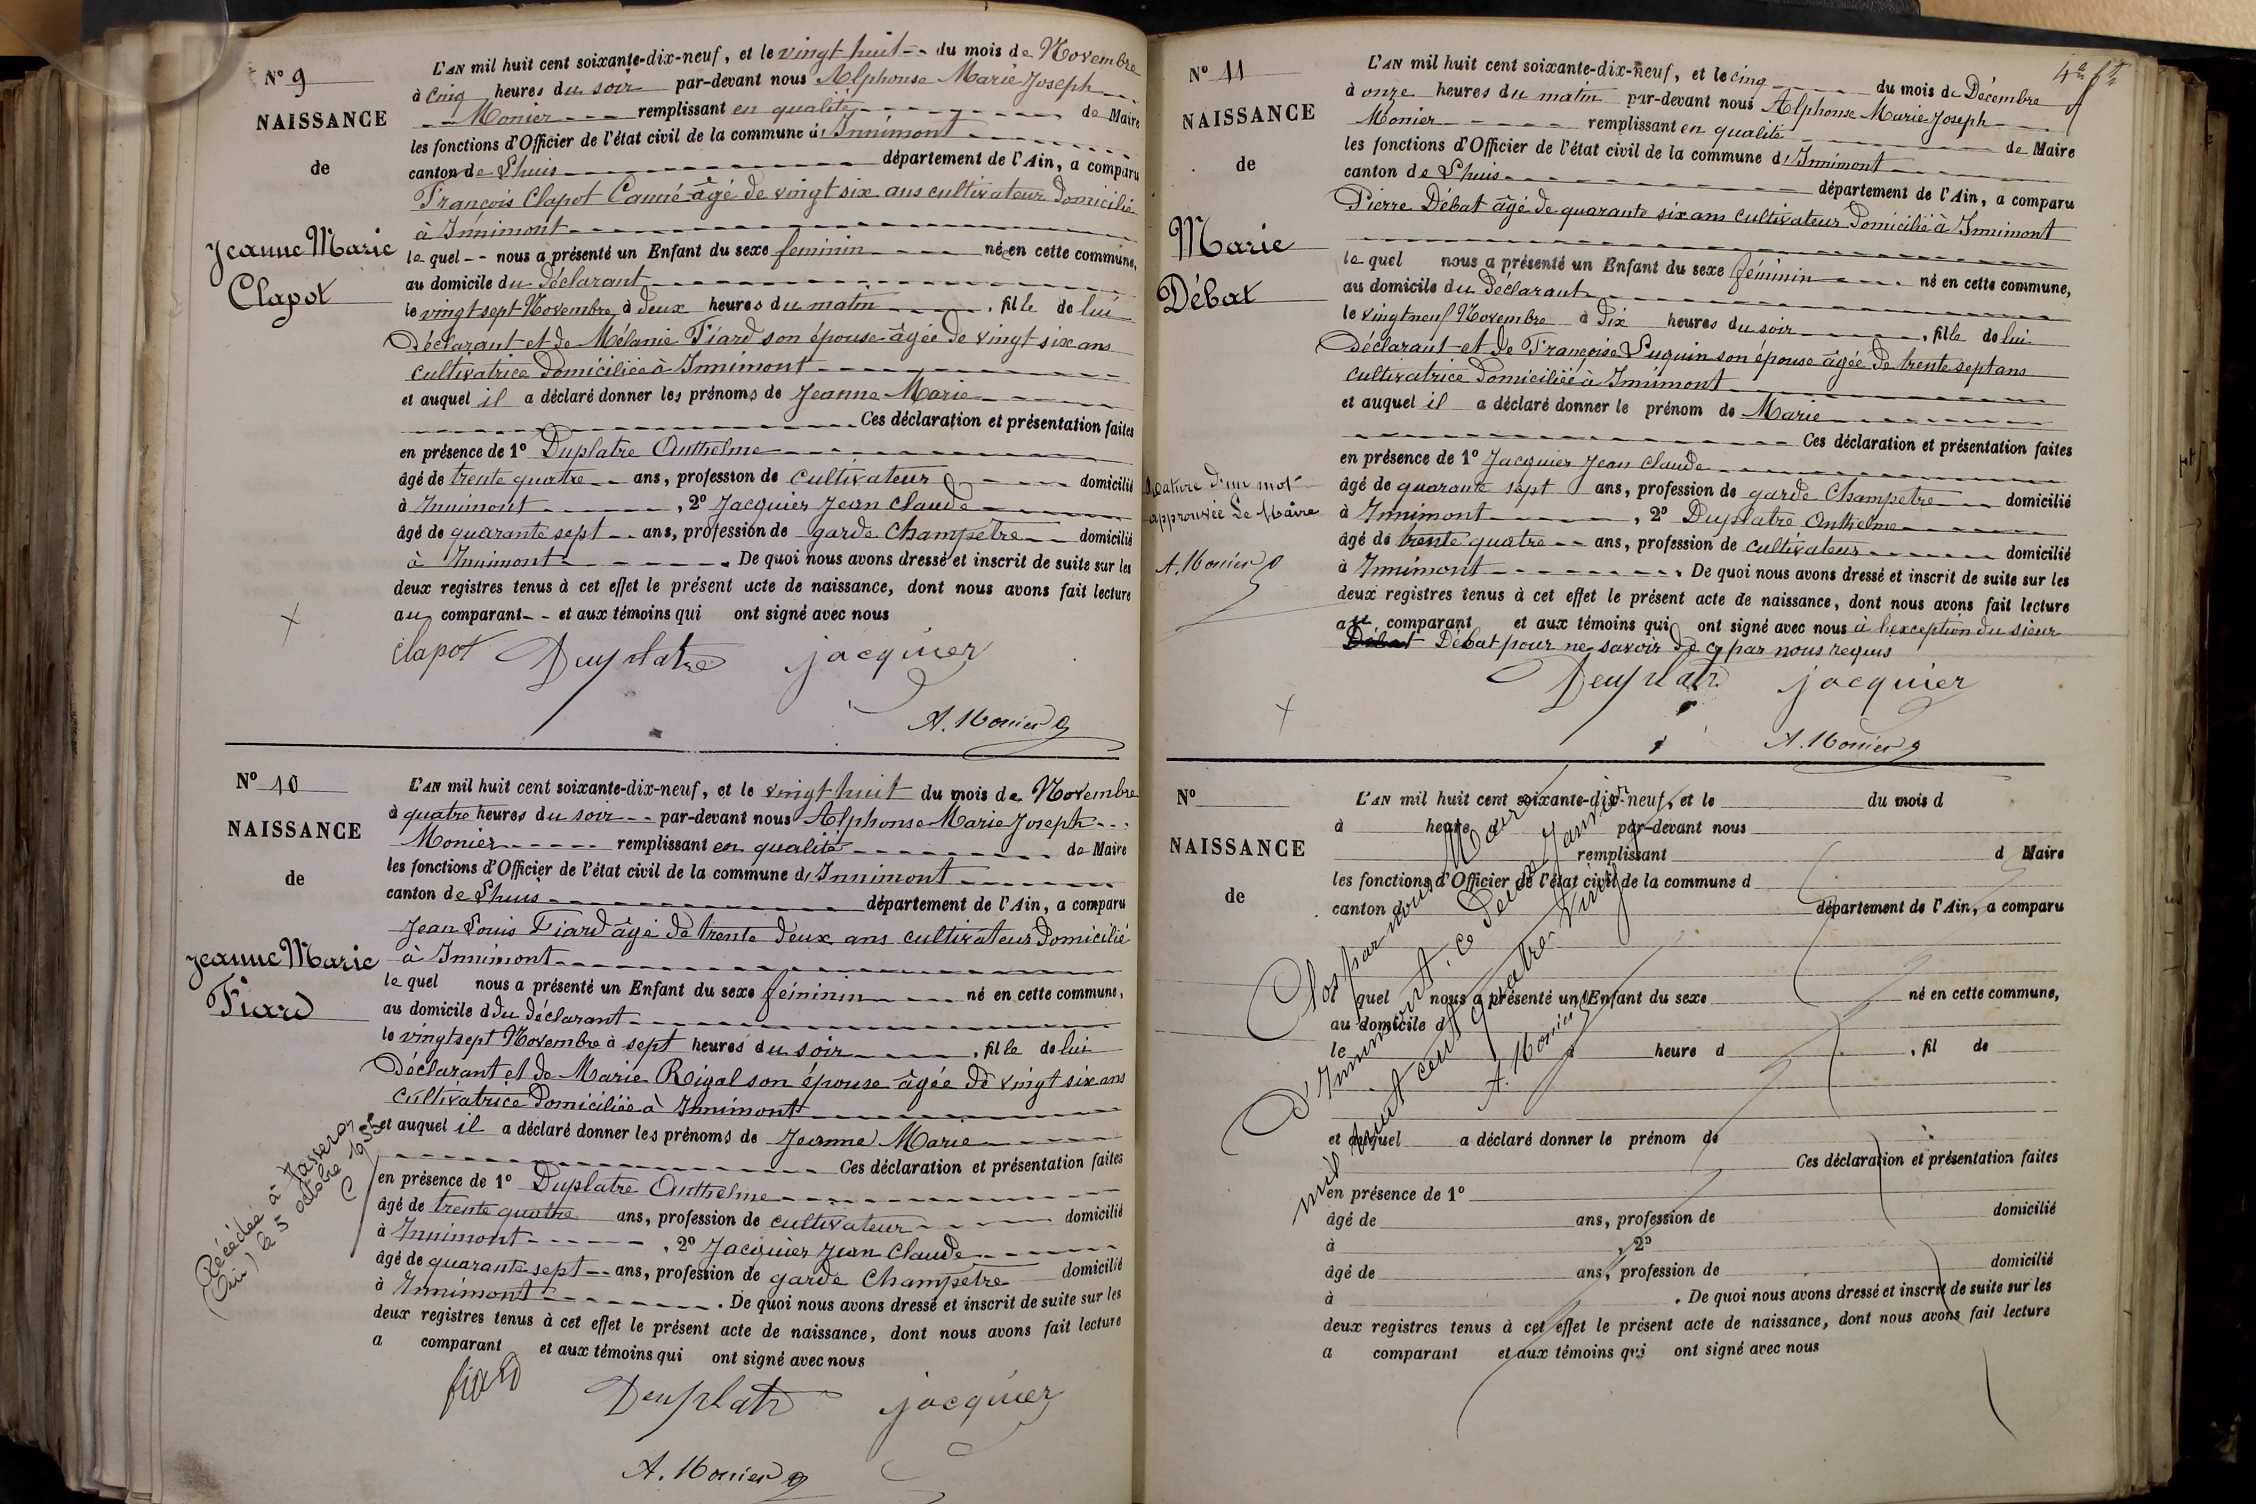 N° 9
NAISSANCE
de
Jeanne Marie
Clapot
L'AN mil huit cent soixante-dix-neuf, et le vingt huit du mois de Novembre
à cinq heures du soir par-devant nous Alphonse Marie Joseph
Monier remplissant en qualité de Maire
les fonctions d'Officier de l'état civil de la commune d'Innimont
canton de Lhuis département de l'Ain, a comparu
François Clapot Canné âgé de vingt six ans cultivateur domicilié
à Innimont
le quel nous a présenté un Enfant du sexe feminin né en cette commune,
au domicile du déclarant
le vingt sept Novembre à deux heures du matin, fille de lui
Déclarant et de Mélanie Fiard son épouse âgée de vingt six ans
cultivatrice domiciliée à Innimont
et auquel il a déclaré donner les prénoms de Jeanne Marie
Ces déclaration et présentation faites
en présence de 1° Duplatre Anthelme
âgé de trente quatre ans, profession de cultivateur domicilié
à Innimont, 2° Jacquier Jean Claude
âgé de quarante sept ans, profession de garde Champêtre domicilié
à Innimont. De quoi nous avons dressé et inscrit de suite sur les
deux registres tenus à cet effet le présent acte de naissance, dont nous avons fait lecture
au comparant et aux témoins qui ont signé avec nous
Clapot Duplatre jacquier
A. Monier
N° 10
NAISSANCE
de
Jeanne Marie
Fiard
Décédée à Jasseron
(Ain) le 5 octobre 1955
L'AN mil huit cent soixante-dix-neuf, et le vingt huit du mois de Novembre
à quatre heures du soir par-devant nous Alphonse Marie Joseph
Monier remplissant en qualité de Maire
les fonctions d'Officier de l'état civil de la commune d'Innimont
canton de Lhuis département de l'Ain, a comparu
Jean Louis Fiard âgé de trente deux ans cultivateur domicilié
à Innimont
le quel nous a présenté un Enfant du sexe féminin né en cette commune,
au domicile d du déclarant
le vingt sept Novembre à sept heures du soir, fille de lui
Déclarant et de Marie Rigal son épouse âgée de vingt six ans
cultivatrice domiciliée à Innimont
et auquel il a déclaré donner les prénoms de Jeanne Marie
Ces déclaration et présentation faites
en présence de 1° Duplatre Anthelme
âgé de trente quatre ans, profession de cultivateur domicilié
à Innimont, 2° Jacquier Jean Claude
âgé de quarante sept ans, profession de garde Champêtre domicilié
à Innimont. De quoi nous avons dressé et inscrit de suite sur les
deux registres tenus à cet effet le présent acte de naissance, dont nous avons fait lecture
a comparant et aux témoins qui ont signé avec nous
fiard Duplatr jacquier
A. Monier
N° 11
NAISSANCE
de
Marie
Débat
Rature d'un mot
approuvée Le Maire
A. Monier
L'AN mil huit cent soixante-dix-neuf, et le cinq du mois de Décembre
à onze heures du matin par-devant nous Alphonse Marie Joseph
Monier remplissant en qualité de Maire
les fonctions d'Officier de l'état civil de la commune d'Innimont
canton de Lhuis département de l'Ain, a comparu
Pierre Débat âgé de quarante six ans cultivateur domicilié à Innimont
le quel nous a présenté un Enfant du sexe féminin né en cette commune,
au domicile du déclarant
le vingt neuf Novembre à dix heures du soir, fille de lui
Déclarant et de Françoise Luquin son épouse âgée de trente sept ans
cultivatrice domiciliée à Innimont
et auquel il a déclaré donner le prénom de Marie
Ces déclaration et présentation faites
en présence de 1° Jacquier Jean Claude
âgé de quarante sept ans, profession de garde Champetre domicilié
à Innimont, 2° Duplatre Anthelme
âgé de trente quatre ans, profession de cultivateur domicilié
à Innimont. De quoi nous avons dressé et inscrit de suite sur les
deux registres tenus à cet effet le présent acte de naissance, dont nous avons fait lecture
au comparant et aux témoins qui ont signé avec nous à l'exception du sieur
Débat Débat pour ne savoir de ce par nous requis
Duplatr jacquier
A. Monier
N°
NAISSANCE
de
L'AN mil huit cent soixante-dix-neuf, et le du mois d
à heure d par-devant nous
remplissant d Maire
les fonctions d'Officier de l'état civil de la commune d
canton d département de l'Ain, a comparu
l quel nous a présenté un Enfant du sexe né en cette commune,
au domicile d
le à heure d, fil de
et auquel a déclaré donner le prénom de
Ces déclaration et présentation faites
en présence de 1°
âgé de ans, profession de domicilié
à, 2°
âgé de ans, profession de domicilié
à. De quoi nous avons dressé et inscrit de suite sur les
deux registres tenus à cet effet le présent acte de naissance, dont nous avons fait lecture
a comparant et aux témoins qui ont signé avec nous
Clos par nous Maire
D'Innimont, ce deux Janvier
mil huit cent quatre-vingt
A. Monier